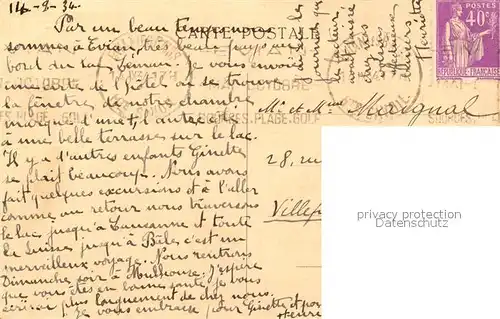 14-8-34.
Par un beau
sommes à Evian, très beau pays au
bord du lac Leman. Je vous envoie
une carte de l'hôtel où se trouve
la fenêtre de notre chambre
marquée d'une
a une belle terrasse sur le lac.
Il y a d'autres enfants Ginette
se plait beaucoup. Nous avons
fait quelques excursions et à l'aller
comme au retour nous traversons
le lac jusqu'à Lausanne et toute
la Suisse jusqu'à Bâle c'est un
merveilleux voyage. Nous rentrons
Dimanche soir à Mulhouse. J'espère
que vous êtes en bonne santé je vous
écrirai plus longuement de chez nous.
Je vous embrasse pour Ginette et
CARTE POSTALE
POSTES
40c
RÉPUBLIQUE FRANÇAISE
Mr et Mme Marignal
PLAGE-GOLF
28, rue
Ville
privacy watermark
oldthing.de